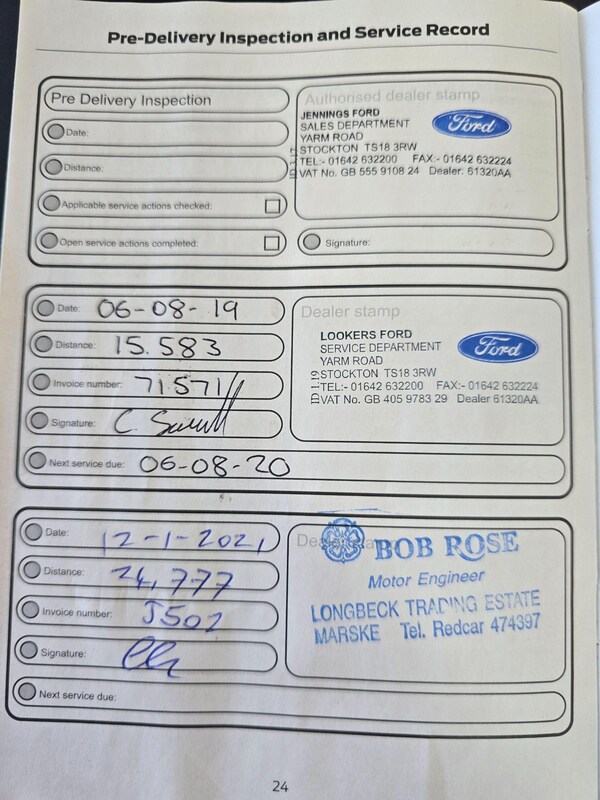 Pre-Delivery Inspection and Service Record
Pre Delivery Inspection
Date:
Distance:
Applicable service actions checked:
Open service actions completed:
Authorised dealer stamp
JENNINGS FORD
SALES DEPARTMENT
YARM ROAD
STOCKTON TS18 3RW
TEL:- 01642 632200 FAX:- 01642 632224
VAT No. GB 555 9108 24 Dealer: 61320AA
Ford
Signature:
Date: 06-08-19
Distance: 15.583
Invoice number: 71571
Signature:
Next service due: 06-08-20
Dealer stamp
LOOKERS FORD
SERVICE DEPARTMENT
YARM ROAD
STOCKTON TS18 3RW
TEL:- 01642 632200 FAX:- 01642 632224
VAT No. GB 405 9783 29 Dealer 61320AA
ID 119
Ford
Date: 12-1-2021
Distance: 24,777
Invoice number: J502
Signature:
Next service due:
BOB ROSE
Motor Engineer
LONGBECK TRADING ESTATE
MARSKE Tel. Redcar 474397
24